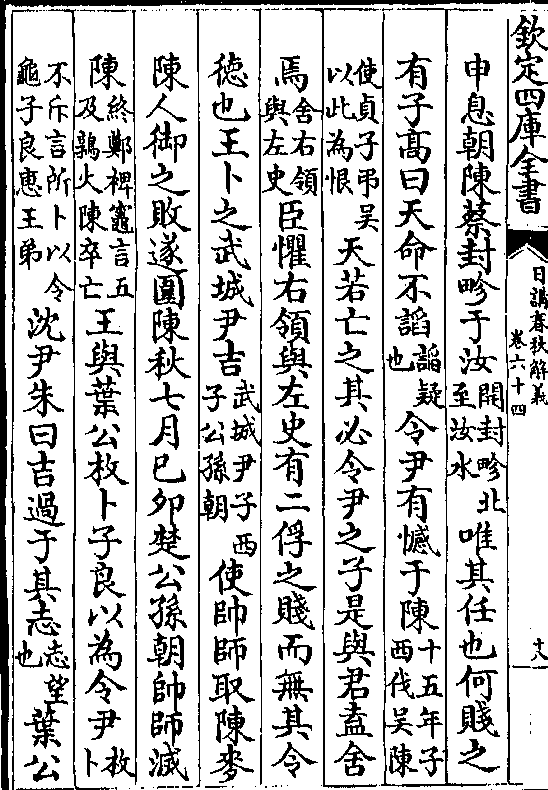 欽定四庫全書
日講春秋解義
卷六十四
十八
申息朝陳蔡封畛于汝開封畛北至汝水唯其任也何賤之
有子高曰天命不謟謟疑也令尹有憾于陳十五年子西伐吳陳
使貞子弔吳以此為恨天若亡之其必令尹之子是與君盍舍
焉舍右領與左史臣懼右領與左史有二俘之賤而無其令
徳也王卜之武城尹吉武城尹子西子公孫朝使帥師取陳麥
陳人御之敗遂圍陳秋七月已卯楚公孫朝帥師滅
陳終鄭裨竈言五及鶉火陳卒亡王與葉公枚卜子良以為令尹枚卜
不斥言所卜以令龜子良惠王弟沈尹朱曰吉過于其志志望也葉公